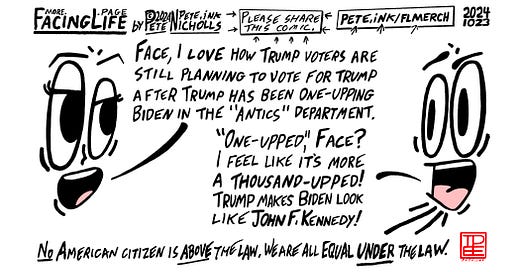 MORE. .PAGE
FACINGLIFE
BY ©2024 PETE.INK
PETE NICHOLLS
PLEASE SHARE
THIS COMIC.
PETE.INK/FLMERCH
2024
1023
FACE, I LOVE HOW TRUMP VOTERS ARE
STILL PLANNING TO VOTE FOR TRUMP
AFTER TRUMP HAS BEEN ONE-UPPING
BIDEN IN THE "ANTICS" DEPARTMENT.
"ONE-UPPED," FACE?
I FEEL LIKE IT'S MORE
A THOUSAND-UPPED!
TRUMP MAKES BIDEN LOOK
LIKE JOHN F. KENNEDY!
NO AMERICAN CITIZEN IS ABOVE THE LAW. WE ARE ALL EQUAL UNDER THE LAW.